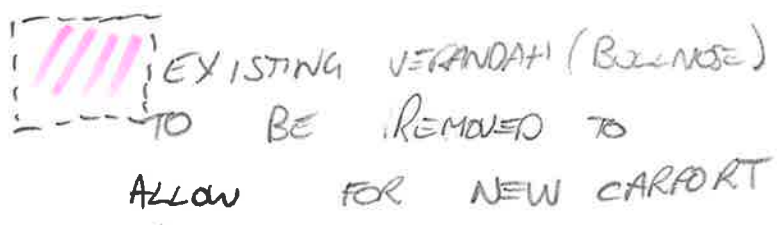 EXISTING VERANDAH (BULLNOSE)
TO BE REMOVED TO
ALLOW FOR NEW CARPORT